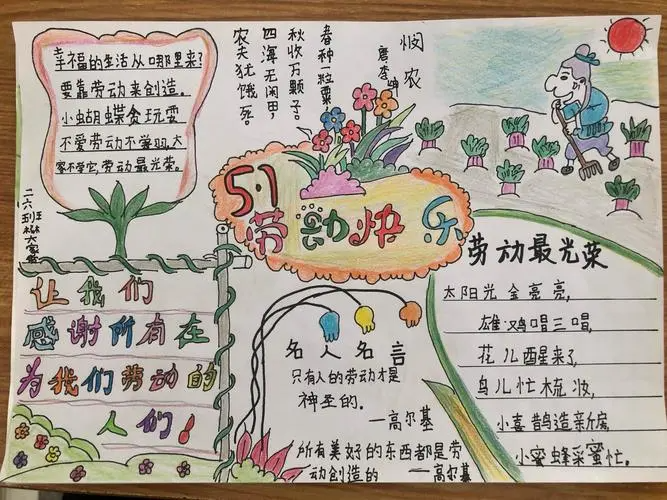 幸福的生活从哪里来?
要靠劳动来创造。
小蝴蝶贪玩耍
不爱劳动不学习,大
家不学它,劳动最光荣。
悯农
唐李绅
春种一粒粟
秋收万颗子。
四海无闲田,
农夫犹饿死。
二六班
5.1
劳动快乐
让我们
感谢所有在
为我们劳动的
人们!
名人名言
只有人的劳动才是
神圣的.
——高尔基
所有美好的东西都是劳
动创造的——高尔基
劳动最光荣
太阳光金亮亮,
雄鸡唱三唱,
花儿醒来了,
鸟儿忙梳妆,
小喜鹊造新房,
小蜜蜂采蜜忙。